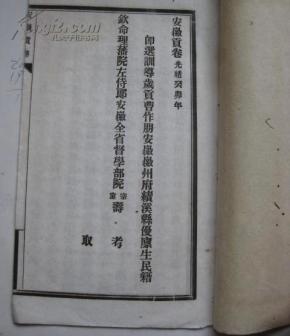 安徽貢卷 光緒癸卯年
即選訓導歲貢曹作朋安徽徽州府績溪縣優廩生民籍
欽命理藩院左侍郎安徽全省督學部院宗室壽 考
取